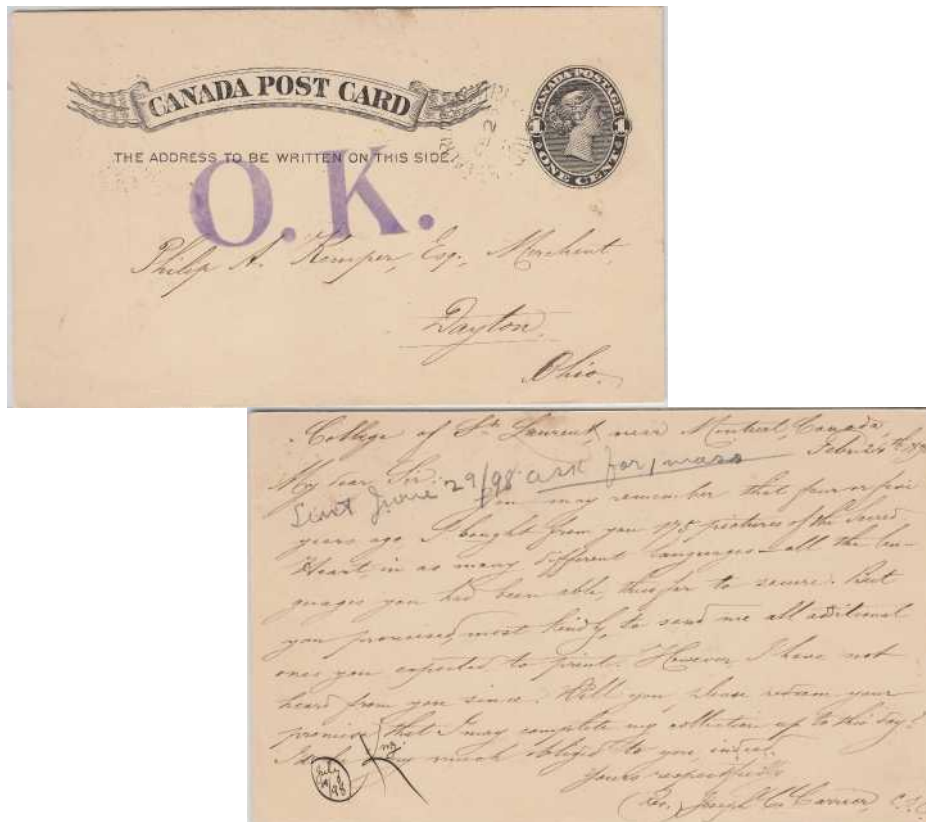 CANADA POST CARD
CANADA POSTAGE
1 1
ONE CENT
THE ADDRESS TO BE WRITTEN ON THIS SIDE.
O.K.
Philip A. Kemper, Esq., Merchant
Dayton,
Ohio.
College of St. Laurent, near Montreal, Canada,
Febr. 24th
My dear Sir:
Sent June 29/98 ask for 1 mass
You may remember that four or five
years ago I bought from you 175 pictures of the Sacred
Heart, in as many different languages — all the lan-
guages you had been able, thus far to secure. But
you promised, most kindly, to send me all aditional
ones you expected to print. However I have not
heard from you since. Will you, please redeem your
promise, that I may complete my collection up to this day?
I much obliged to you, indeed.
Yours respectfully
(Rev.) Joseph C. Carrier, C.S.C.
July
98